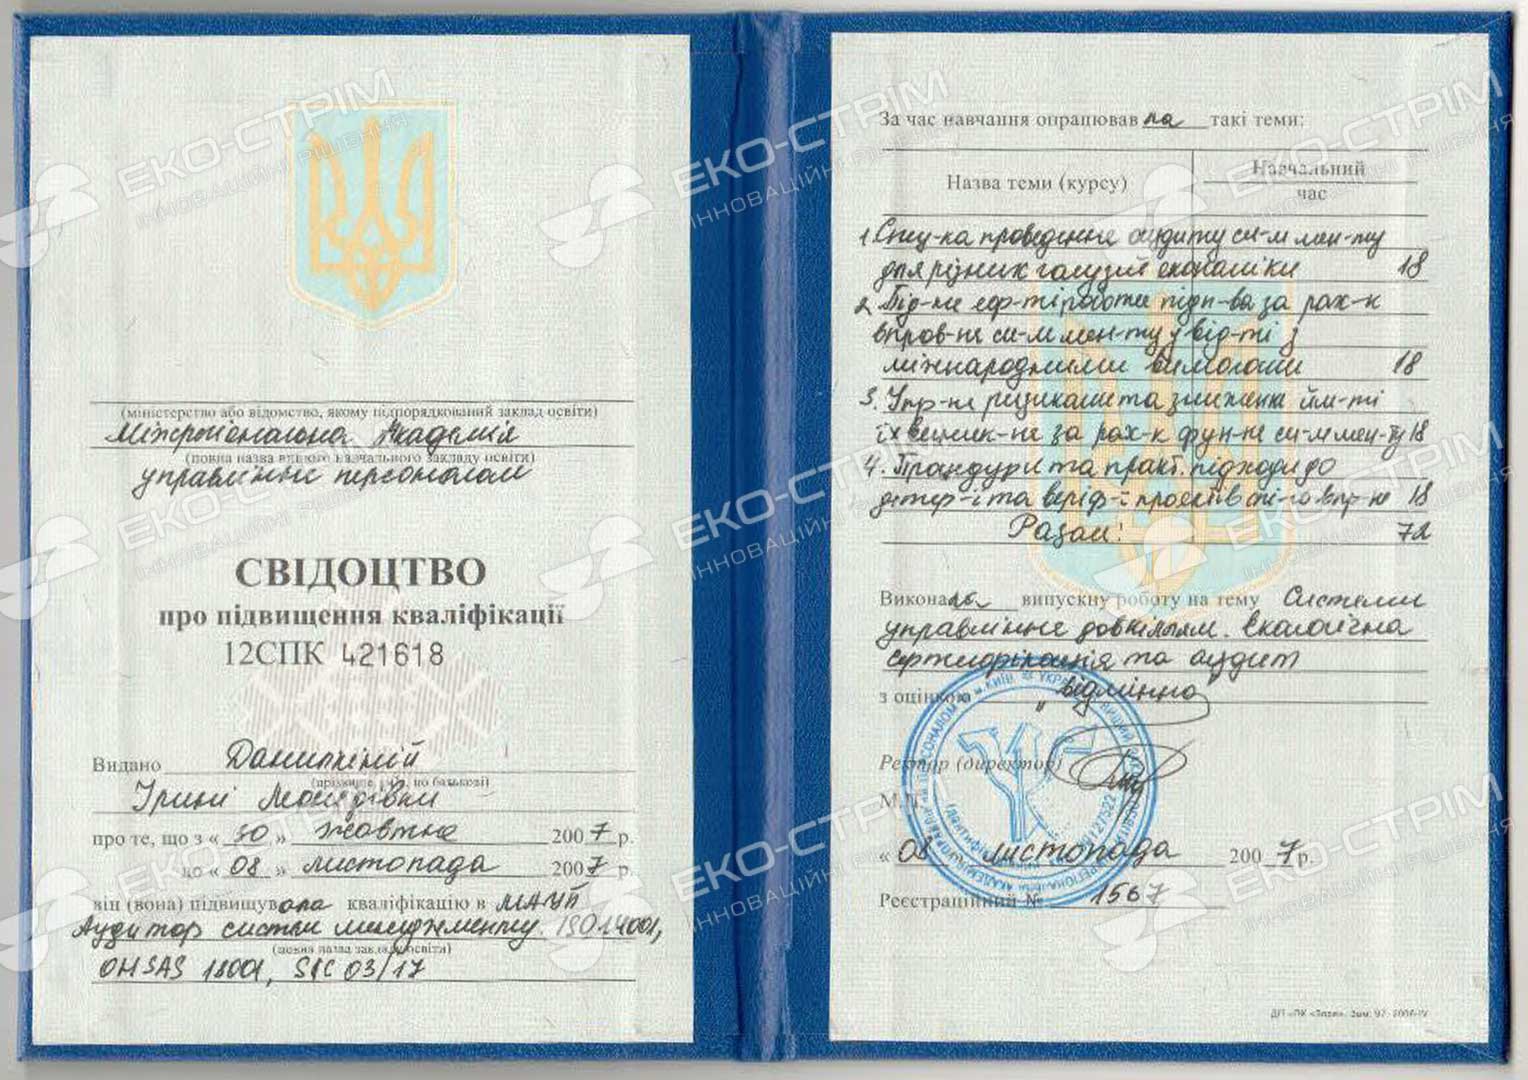 (міністерство або відомство, якому підпорядкований заклад освіти)
Міжрегіональна Академія
(повна назва вищого навчального закладу освіти)
управління персоналом
СВІДОЦТВО
про підвищення кваліфікації
12СПК 421618
Видано
(прізвище, ім'я, по батькові)
Ірині
про те, що з « 30 » жовтня 2007 р.
до « 08 » листопада 2007 р.
він (вона) підвищувала кваліфікацію в МАУП
Аудитор систем менеджменту ISO 14001,
(повна назва закладу освіти)
OHSAS 18001, SIC 03/17
За час навчання опрацювавла такі теми:
Назва теми (курсу)
Навчальний
час
1. Спец-ка проведення аудиту си-м мен-ту
для різних галузей економіки 18
2. Під-не еф-ті роботи підп-ва за рах-к
впров-не си-м мен-ту у від-ті з
міжнародними вимогами 18
3. Упр-не ризиками та зниження йм-ті
їх виник-не за рах-к фун-не си-м мен-ту 18
4. Процедури та практ. підходи до
детер-ї та веріф-ї проектів 18
Разом: 72
Виконала випускну роботу на тему Системи
управління довкіллям. Екологічна
сертифікація та аудит
з оцінкою „відмінно"
Ректор (директор)
М.П.
« 08 листопада 2007 р.
Реєстраційний № 1567
ЕКО-СТРІМ
ІННОВАЦІЙНІ РІШЕННЯ